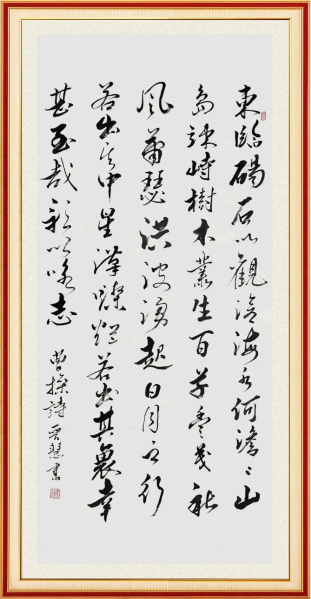 東臨碣石以觀滄海水何澹〻山
島竦峙樹木叢生百草豐茂秋
風蕭瑟洪波湧起日月之行
若出其中星漢燦爛若出其裏幸
甚至哉歌以詠志
曹操詩晋慧書